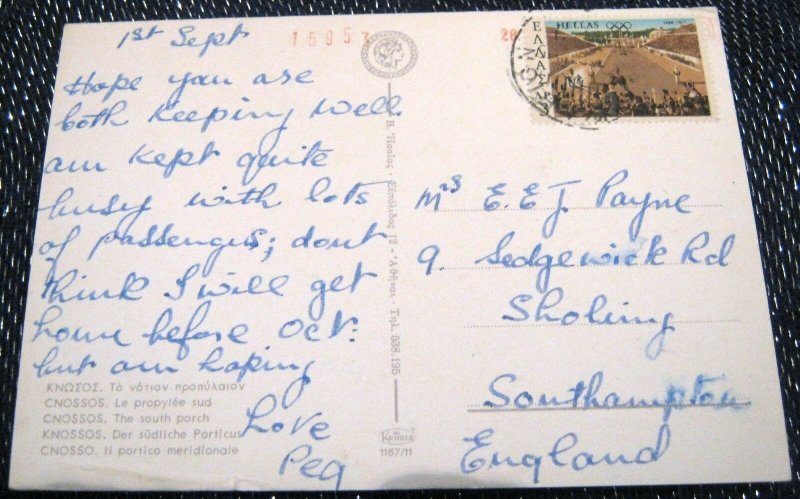 1st Sept
Hope you are
both keeping well
am kept quite
busy with lots
of passengers; dont
think I will get
home before Oct:
but am hoping
Love
Peg
ΚΝΩΣΟΣ. Τὸ νότιον προπύλαιον
CNOSSOS. Le propylée sud
CNOSSOS. The south porch
KNOSSOS. Der südliche Porticus
CNOSSO. Il portico meridionale
15957
20
ΕΛΛΑΣ
HELLAS
Τηλ. 538.195
Krüger
1167/11
Mrs E. E J. Payne
9. Sedgewick Rd
Sholing
Southampton
England